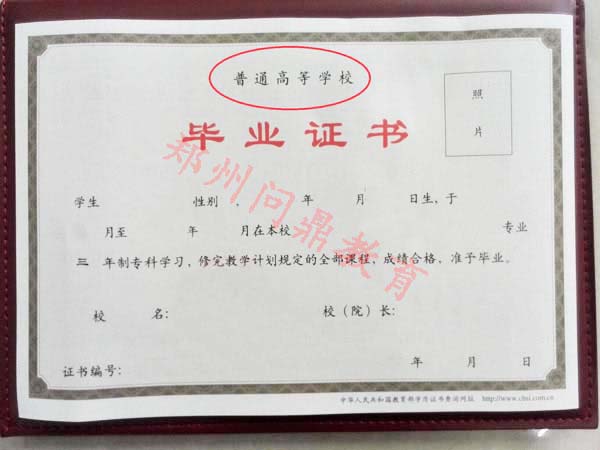 普通高等学校
照
片
毕业证书
郑州问鼎教育
学生 性别 、 年 月 日生，于
月至 年 月在本校 专业
三 年制专科学习，修完教学计划规定的全部课程，成绩合格，准予毕业。
校 名： 校（院）长：
证书编号： 年 月 日
中华人民共和国教育部学历证书查询网址 http://www.chsi.com.cn